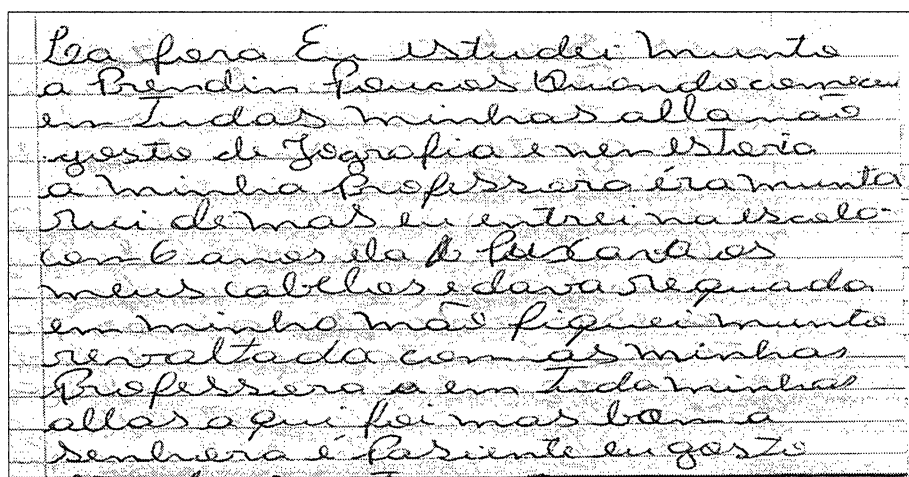 La fora Eu istudei munto
a Prendin Poucos Quando comecei
em Tudas minhas alla não
gosto de Jografia e nen Estoria
a minha Professora éra munta
rui demas eu entrei na escola
com 6 anos ela Puxava os
meus cabelhos e dava reguada
em minho mão fiquei munto
revoltada com as minhas
Professora em Tuda minhas
allas aqui foi mas bom a
senhora é Pasiente eu gosto